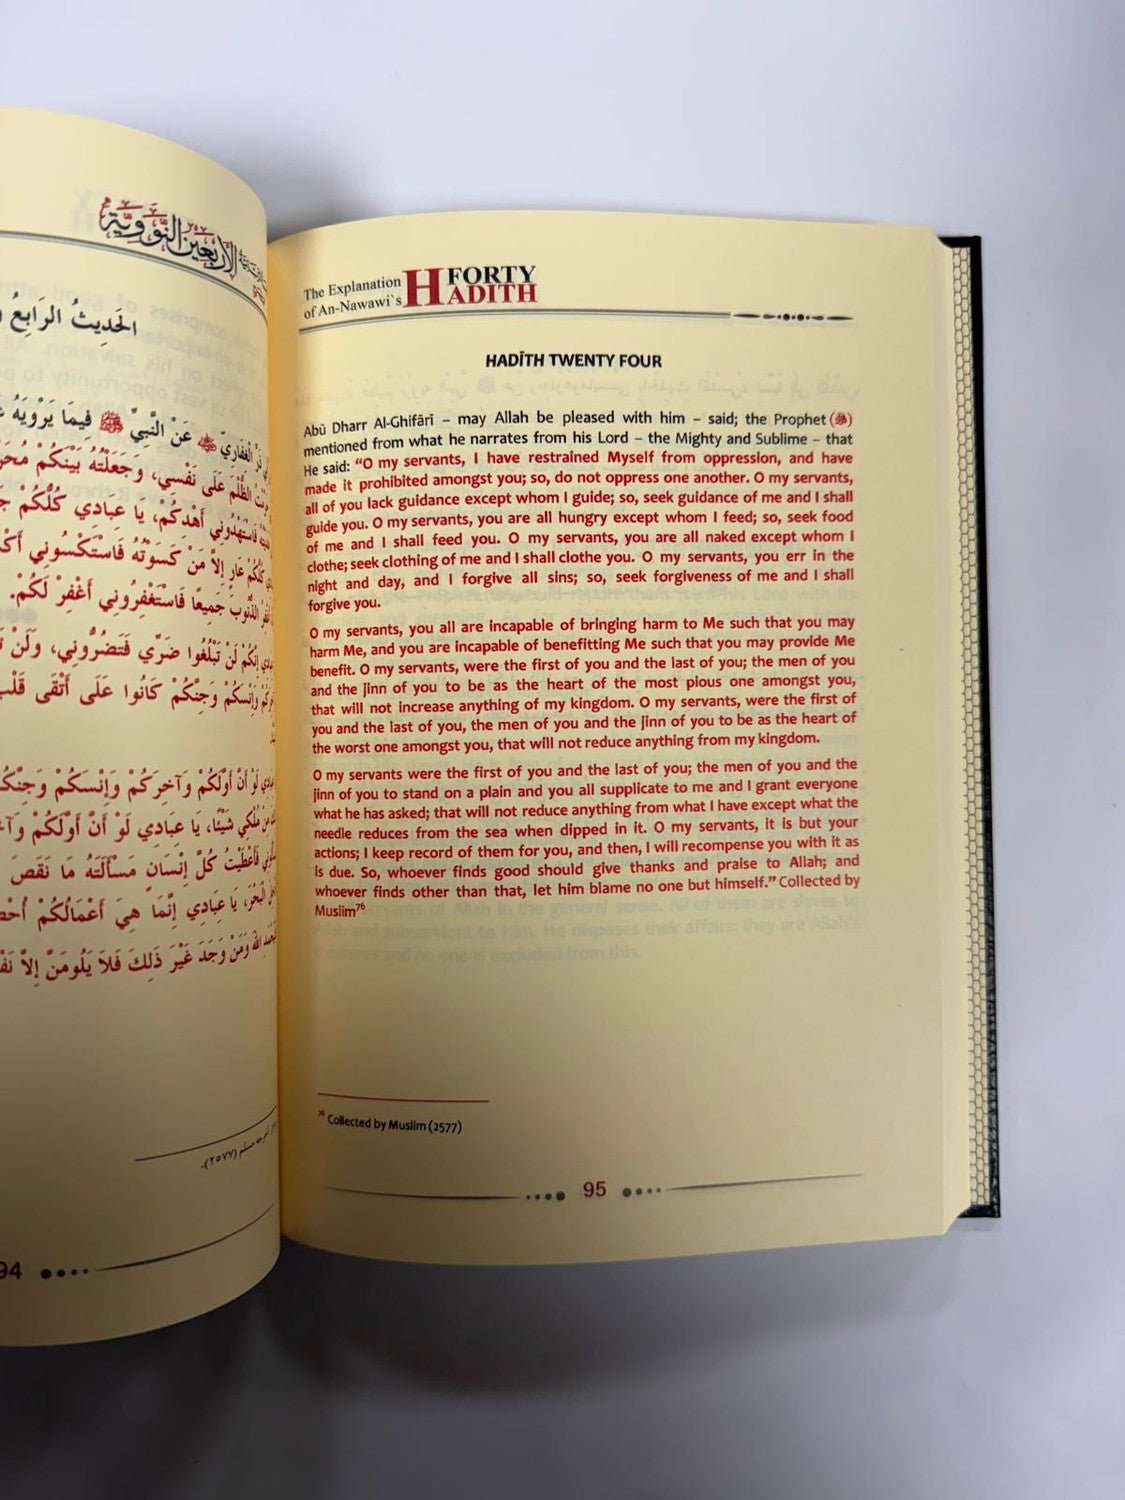 الأَرْبَعِينَ النَّوَوِيَّة
الحَدِيثُ الرَابِعُ
ذَرٍّ الْغِفَارِيِّ عَنْ النَّبِيِّ ﷺ فِيمَا يَرْوِيهِ
الظُّلْمَ عَلَى نَفْسِي، وَجَعَلْتُهُ بَيْنَكُمْ
فَاسْتَهْدُونِي أَهْدِكُمْ، يَا عِبَادِي كُلُّكُمْ
كُلُّكُمْ عَارٍ إِلاَّ مَنْ كَسَوْتُهُ فَاسْتَكْسُونِي
الذُّنُوبَ جَمِيعًا فَاسْتَغْفِرُونِي أَغْفِرْ لَكُمْ.
إِنَّكُمْ لَنْ تَبْلُغُوا ضَرِّي فَتَضُرُّونِي، وَلَنْ
وَإِنْسَكُمْ وَجِنَّكُمْ كَانُوا عَلَى أَتْقَى
لَوْ أَنَّ أَوَّلَكُمْ وَآخِرَكُمْ وَإِنْسَكُمْ
مِنْ مُلْكِي شَيْئًا، يَا عِبَادِي لَوْ أَنَّ أَوَّلَكُمْ
فَأَعْطَيْتُ كُلَّ إِنْسَانٍ مَسْأَلَتَهُ مَا نَقَصَ
الْبَحْرَ، يَا عِبَادِي إِنَّمَا هِيَ أَعْمَالُكُمْ
اللهَ وَمَنْ وَجَدَ غَيْرَ ذَلِكَ فَلاَ يَلُومَنَّ إِلاَّ
مسلم (٢٥٧٧).
94
The Explanation
of An-Nawawi`s
FORTY
HADITH
HADĪTH TWENTY FOUR
Abū Dharr Al-Ghifārī – may Allah be pleased with him – said; the Prophet (ﷺ)
mentioned from what he narrates from his Lord – the Mighty and Sublime – that
He said: “O my servants, I have restrained Myself from oppression, and have
made it prohibited amongst you; so, do not oppress one another. O my servants,
all of you lack guidance except whom I guide; so, seek guidance of me and I shall
guide you. O my servants, you are all hungry except whom I feed; so, seek food
of me and I shall feed you. O my servants, you are all naked except whom I
clothe; seek clothing of me and I shall clothe you. O my servants, you err in the
night and day, and I forgive all sins; so, seek forgiveness of me and I shall
forgive you.
O my servants, you all are incapable of bringing harm to Me such that you may
harm Me, and you are incapable of benefitting Me such that you may provide Me
benefit. O my servants, were the first of you and the last of you; the men of you
and the jinn of you to be as the heart of the most pious one amongst you,
that will not increase anything of my kingdom. O my servants, were the first of
you and the last of you, the men of you and the jinn of you to be as the heart of
the worst one amongst you, that will not reduce anything from my kingdom.
O my servants were the first of you and the last of you; the men of you and the
jinn of you to stand on a plain and you all supplicate to me and I grant everyone
what he has asked; that will not reduce anything from what I have except what the
needle reduces from the sea when dipped in it. O my servants, it is but your
actions; I keep record of them for you, and then, I will recompense you with it as
is due. So, whoever finds good should give thanks and praise to Allah; and
whoever finds other than that, let him blame no one but himself.” Collected by
Muslim⁷⁶
⁷⁶ Collected by Muslim (2577)
95